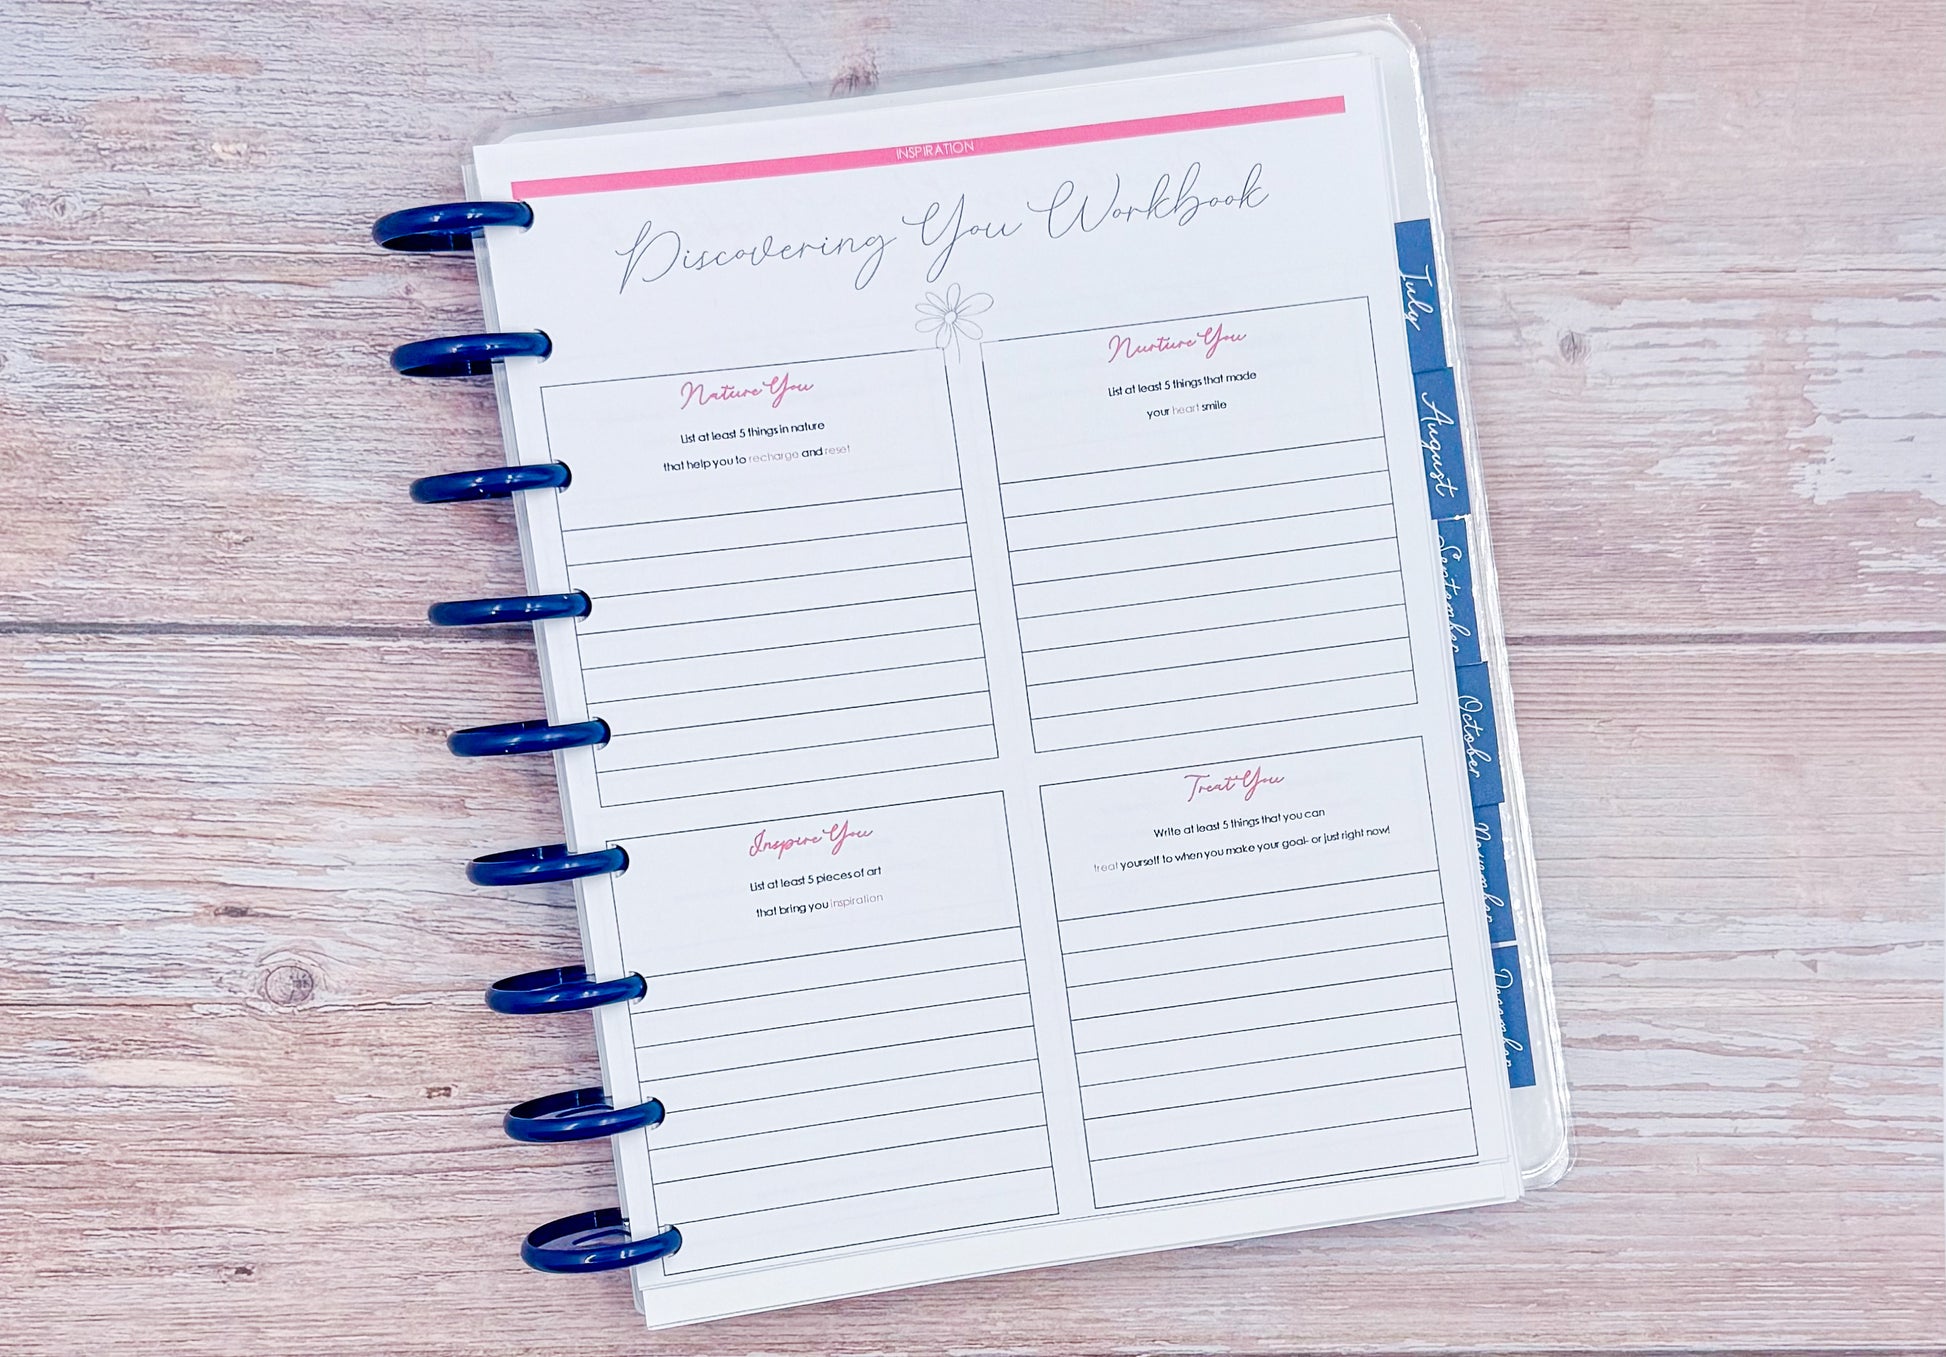 INSPIRATION
Discovering You Workbook
Nature You
List at least 5 things in nature
that help you to recharge and reset
Nurture You
List at least 5 things that made
your heart smile
Inspire You
List at least 5 pieces of art
that bring you inspiration
Treat You
Write at least 5 things that you can
treat yourself to when you make your goal- or just right now!
July
August
September
October
November
December